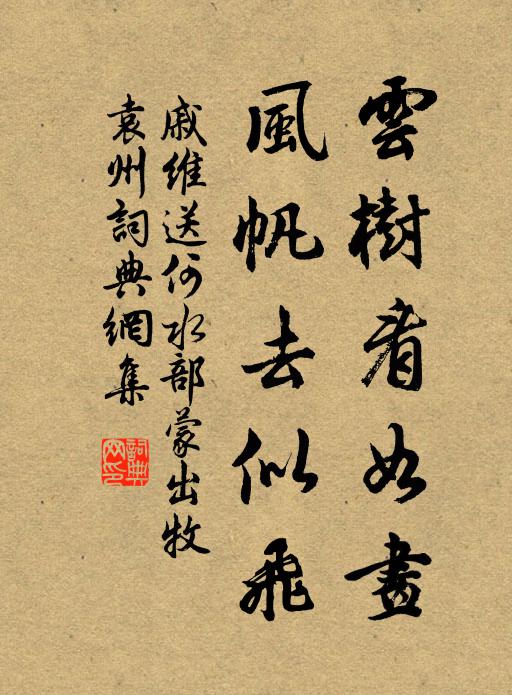 雲樹看如畫
風帆去似飛
戚維送何水部蒙出牧
袁州詞典網集
詞典網印